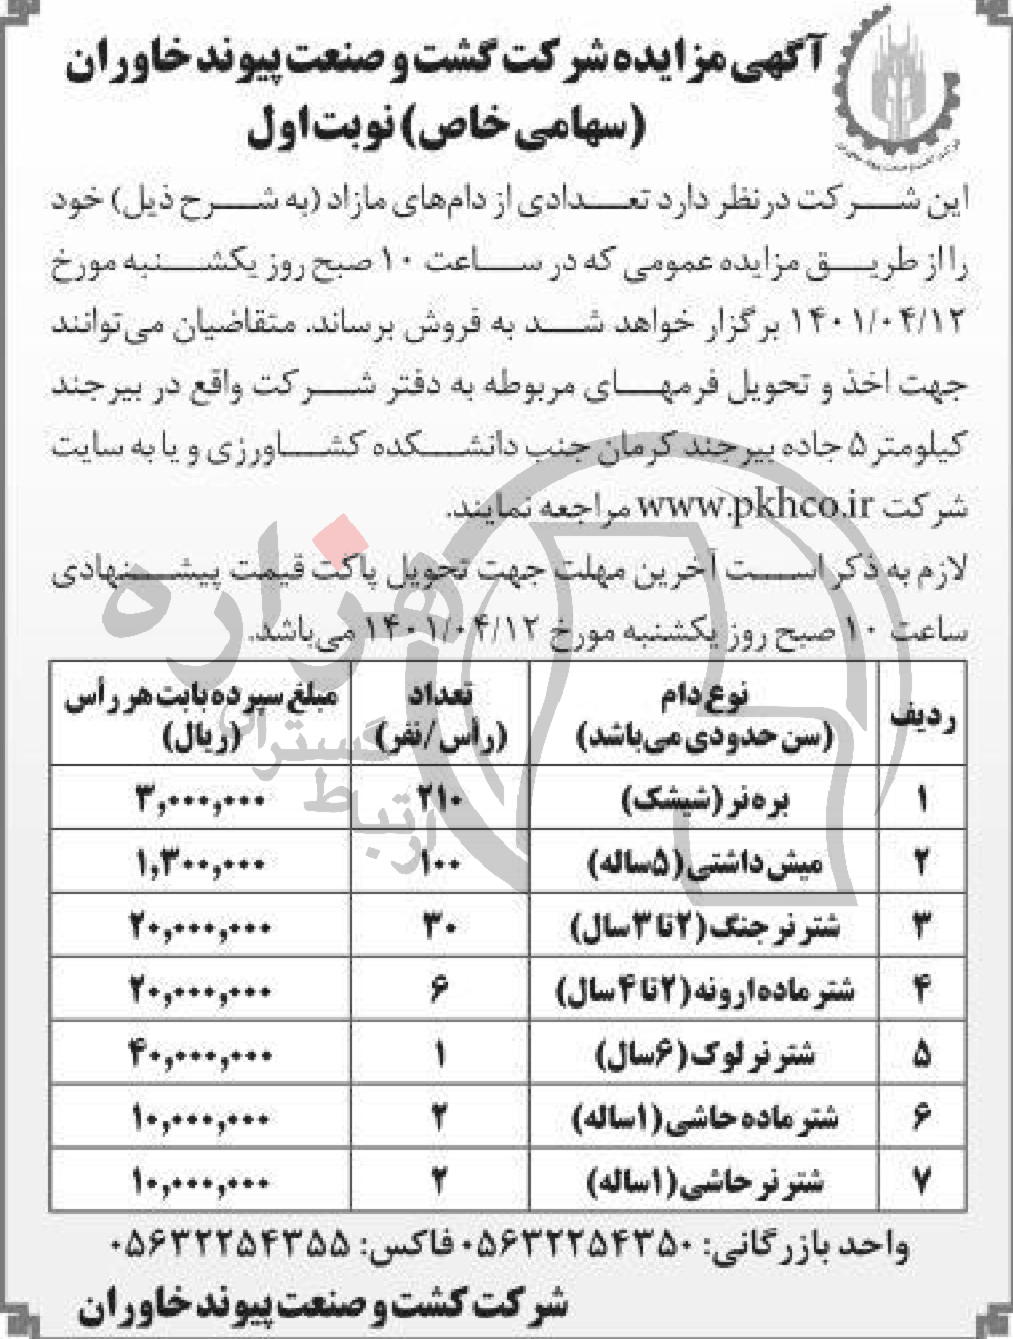 آگهی مزایده شرکت کشت و صنعت پیوند خاوران
(سهامی خاص) نوبت اول
این شرکت درنظر دارد تعدادی از دام‌های مازاد (به شرح ذیل) خود
را از طریق مزایده عمومی که در ساعت ۱۰ صبح روز یکشنبه مورخ
۱۴۰۱/۰۴/۱۲ برگزار خواهد شد به فروش برساند. متقاضیان می‌توانند
جهت اخذ و تحویل فرمهای مربوطه به دفتر شرکت واقع در بیرجند
کیلومتر ۵ جاده بیرجند کرمان جنب دانشکده کشاورزی و یا به سایت
شرکت www.pkhco.ir مراجعه نمایند.
لازم به ذکر است آخرین مهلت جهت تحویل پاکت قیمت پیشنهادی
ساعت ۱۰ صبح روز یکشنبه مورخ ۱۴۰۱/۰۴/۱۲ می‌باشد.
ردیف نوع دام (سن حدودی می‌باشد) تعداد (رأس/نفر) مبلغ سپرده بابت هر رأس (ریال)
۱ بره نر (شیشک) ۲۱۰ ۳,۰۰۰,۰۰۰
۲ میش داشتی (۵ساله) ۱۰۰ ۱,۳۰۰,۰۰۰
۳ شتر نر جنگ (۲ تا ۳ سال) ۳۰ ۲۰,۰۰۰,۰۰۰
۴ شتر ماده ارونه (۲ تا ۴ سال) ۶ ۲۰,۰۰۰,۰۰۰
۵ شتر نر لوک (۶سال) ۱ ۴۰,۰۰۰,۰۰۰
۶ شتر ماده حاشی (۱ساله) ۲ ۱۰,۰۰۰,۰۰۰
۷ شتر نر حاشی (۱ساله) ۲ ۱۰,۰۰۰,۰۰۰
واحد بازرگانی: ۰۵۶۳۲۲۵۴۳۵۰ فاکس: ۰۵۶۳۲۲۵۴۳۵۵
شرکت کشت و صنعت پیوند خاوران
هزاره
گسترش
ارتباط